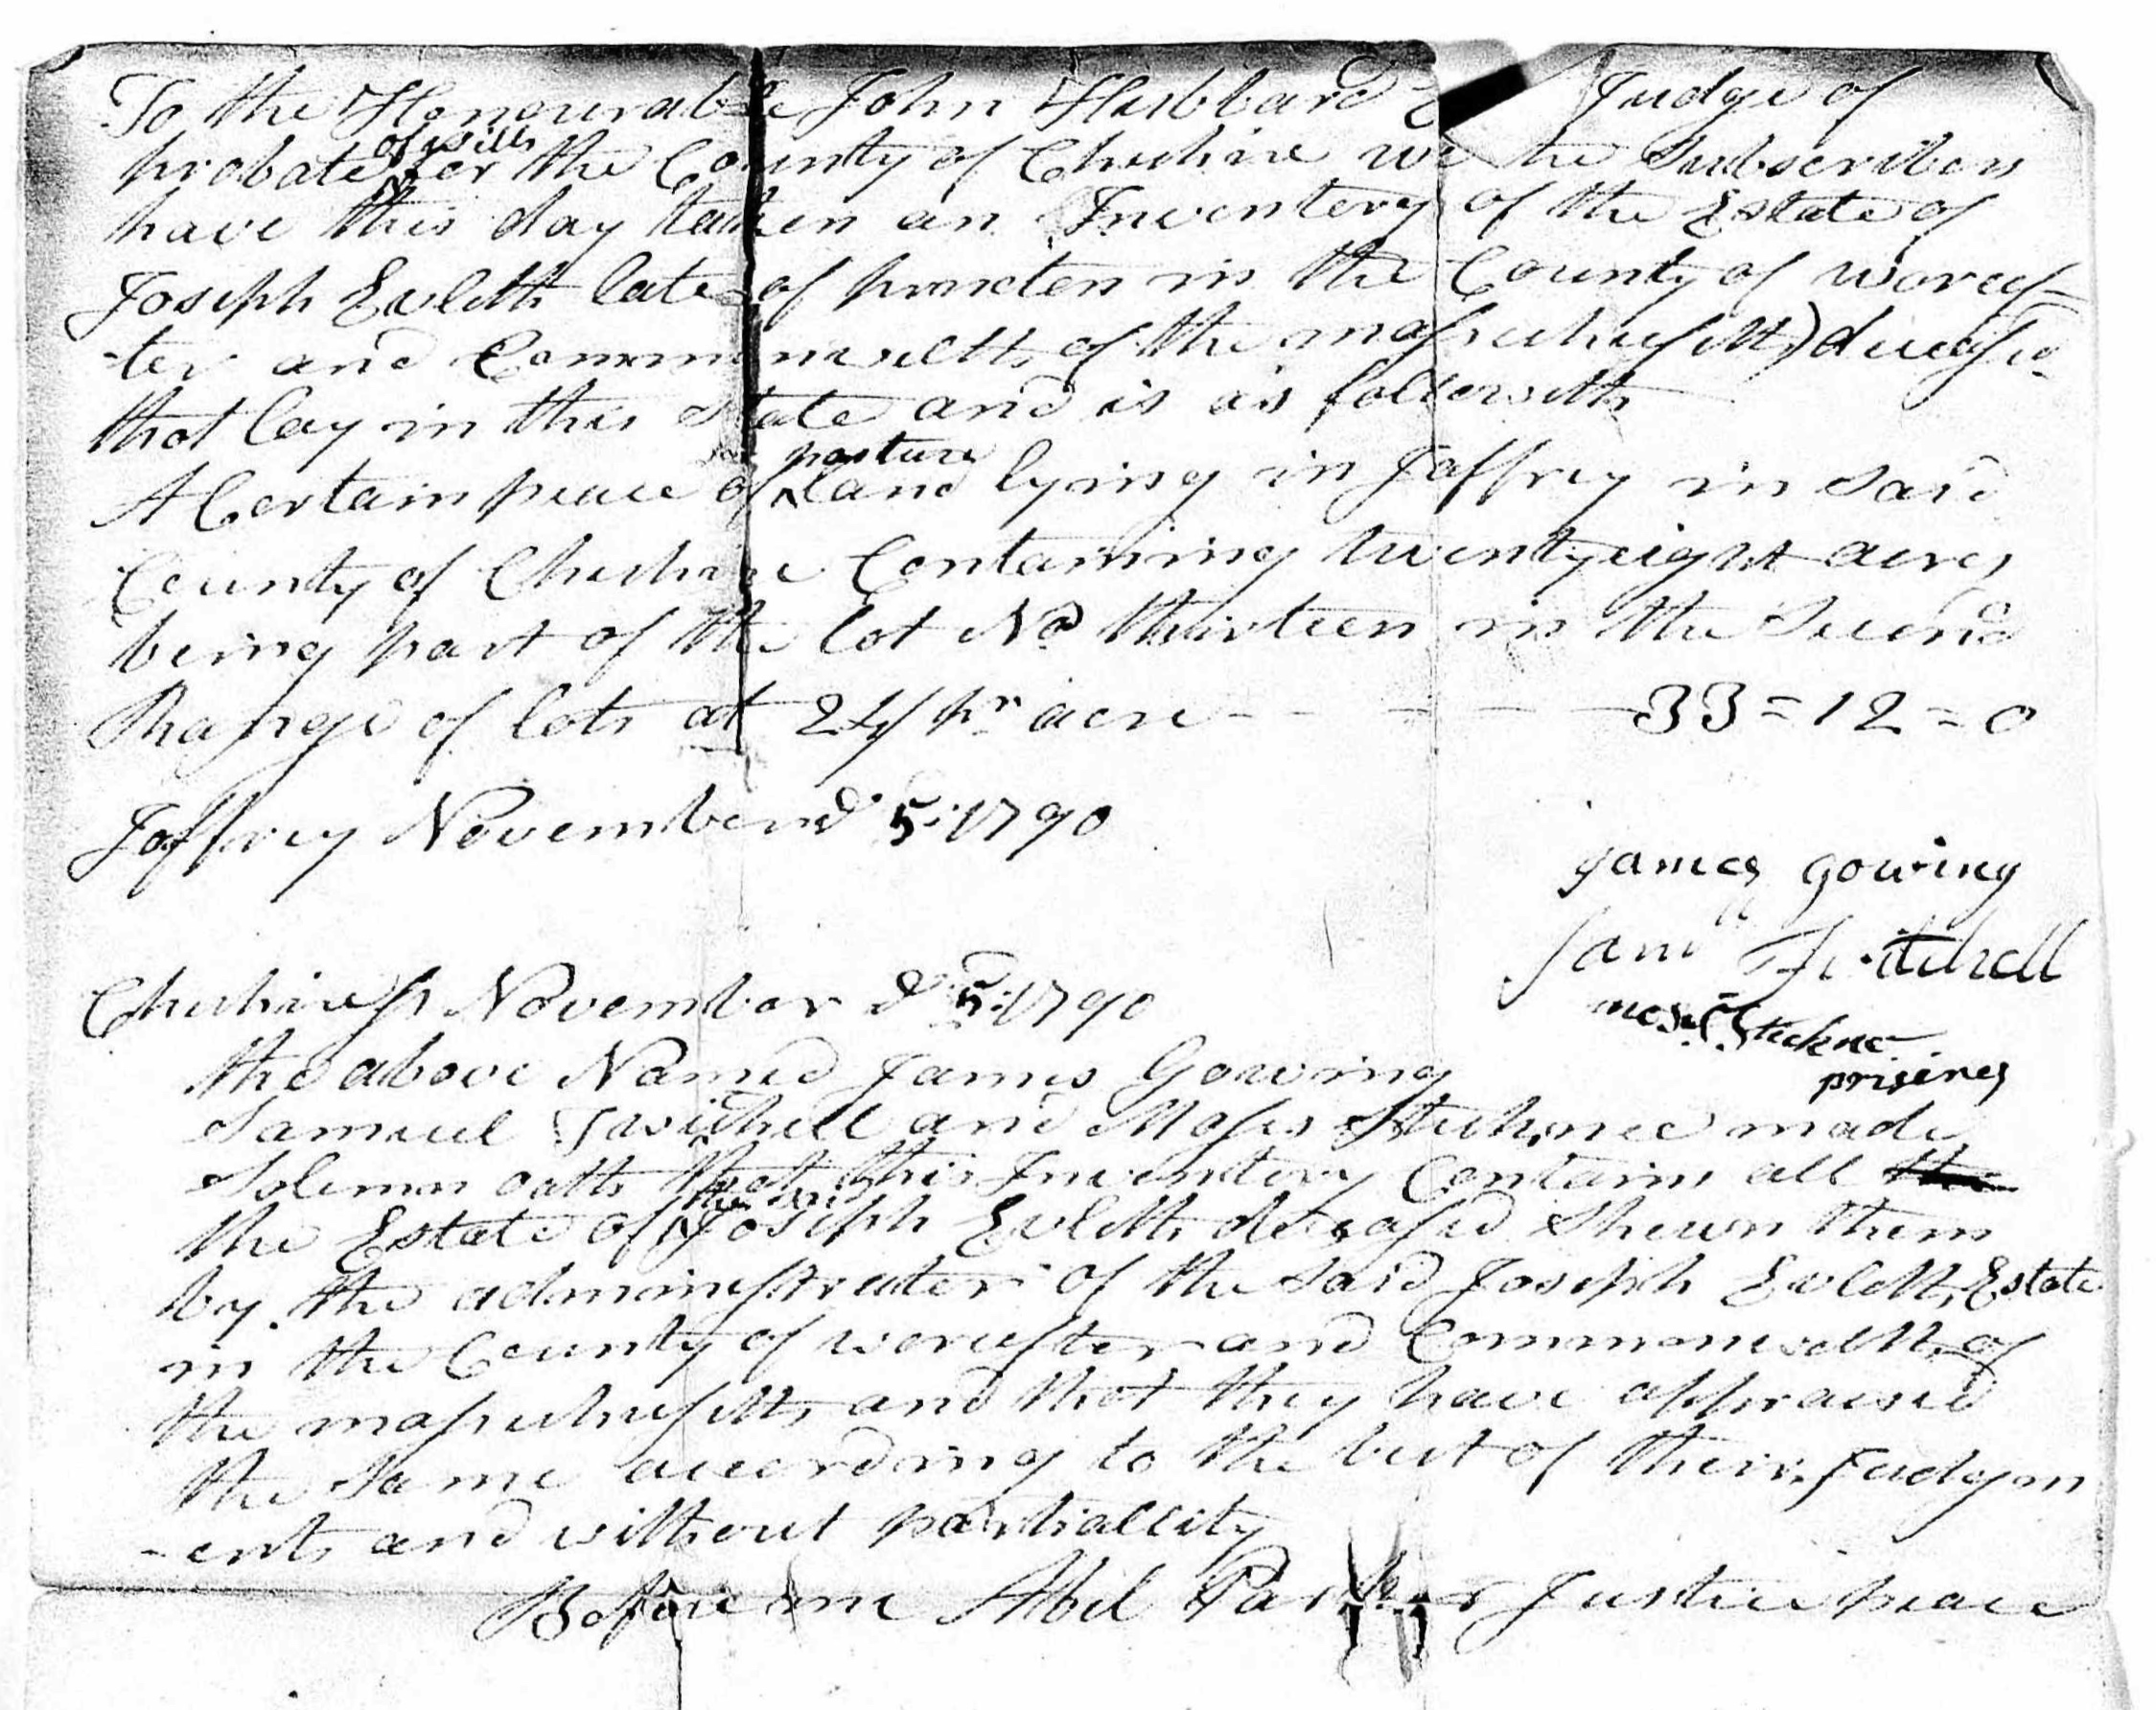 To the Honourable John Hubbard Judge of
probate of wills for the County of Cheshire we the Subscribers
have this day taken an Inventery of the Estate of
Joseph Evleth late of princten in the County of worces-
-ter and Commonwelth of the massechusetts) deceased
that lay in this State and is as folloeweth
A Certain peace of pasture land lying in Jaffrey in said
County of Cheshire Containing twentyeight acres
being part of the lot No thirteen in the Second
Range of lots at 24/ pr acre - - - - - 33=12=0
Jaffrey November ye 5: 1790
james gowing
Samll Twitchell
moses Stickne
prisires
Cheshire ss November ye 5: 1790
the above Named James Gowing
Samuel Twichell and Moses Stickne made
Solemn oath that this Inventory Contains all the
the Estate of the said Joseph Evleth deceased Shewn them
by the adminestrater of the said Joseph Evleth, Estate
in the County of worcester and Commonwelth of
the massechusetts and that they have appraised
the same according to the best of their Judgm
-ents and without partiallity
Before me Abel Parker Justice peace